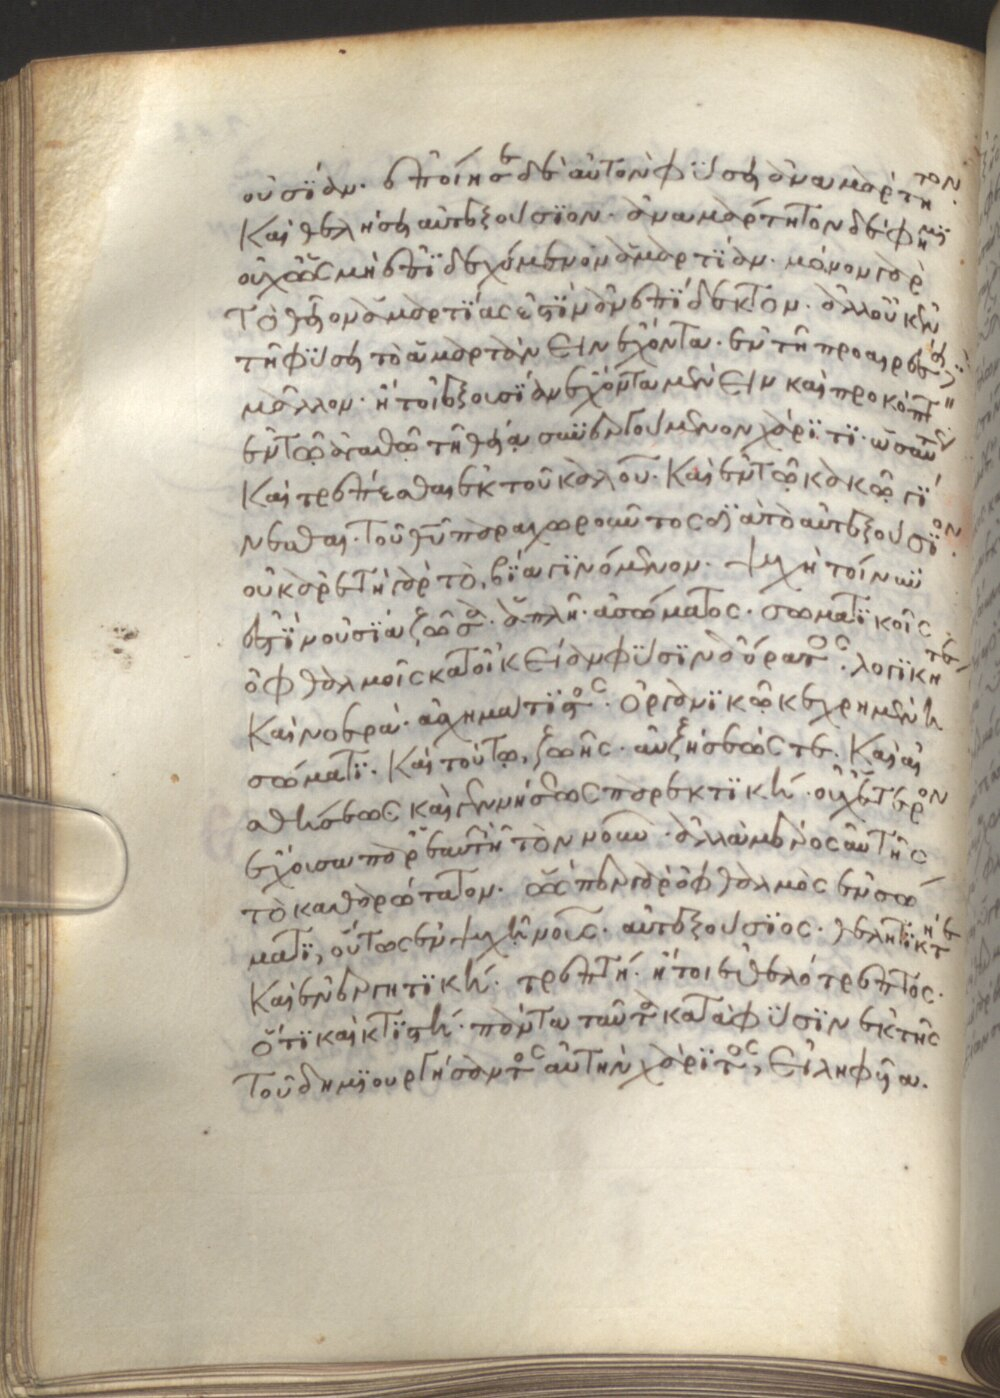 οὐσΐαν. ἐποίησε δὲ αὐτὸν φΰσει ἀναμάρτητον.
Καὶ θελήσει αὐτεξουσϊον. ἀναμάρτητον δέ φημϊ
οὐχ ὡς μὴ ἐπϊδεχόμενον ἁμαρτΐαν. μόνον γὰρ
τὸ θεῖον ἁμαρτΐας ἐστϊν ἀνεπΐδεκτον. ἀλλ οὐκ ἐν
τῇ φΰσει τὸ ἁμαρτάνειν ἔχοντα. ἐν τῇ προαιρέσει δὲ
μᾶλλον. ἤτοι ἐξουσΐαν ἔχοντα μένειν καὶ προκόπτειν
ἐν τῷ ἀγαθῷ τῇ θείᾳ συνεργούμενον χάρϊτϊ. ὡσαύτως
Καὶ τρέπεσθαι ἐκ τοῦ καλοῦ. Καὶ ἐν τῷ κακῷ γΐ
νεσθαι. τοῦ θῡ παραχωροῦντος δϊὰ τὸ αὐτεξουσϊον.
οὐκ ἀρετὴ γὰρ τὸ, βΐα γϊνόμενον. ψυχὴ τοίνυν
ἐστΐν οὐσΐα ζῶσα. ἁπλῆ. ἀσώματος. σωματϊκοῖς
ὀφθαλμοῖς κατοἰκείαν φΰσϊν ἀόρατος. λογϊκή τε
Καὶ νοερά. ἀσχημάτϊστος. ὀργανϊκῷ κεχρημένη
σώματϊ. Καὶ τούτῳ, ζωῆς. αὐξήσεώς τε. Καὶ αἰ
σθήσεως καὶ γεννήσεως παρεκτϊκή. οὐχ ἕτερον
ἔχουσα παρ ἑαυτὴν τὸν νοῦν. ἀλλὰ μέρος αὐτῆς
τὸ καθαρώτατον. ὥσπερ γὰρ ὀφθαλμὸς ἐν σώ
ματϊ, οὕτως ἐν ψυχῇ νοῦς. αὐτεξουσϊος. θελητϊκή τε
Καὶ ἐνεργητϊκή. τρεπτή. ἤτοι ἐθελότρεπτος.
ὅτϊ καὶ κτϊστή. πάντα ταῦτα κατὰ φΰσϊν ἐκ τῆς
τοῦ δημϊουργήσαντος αὐτὴν χάρϊτος, εἰληφυῖα.